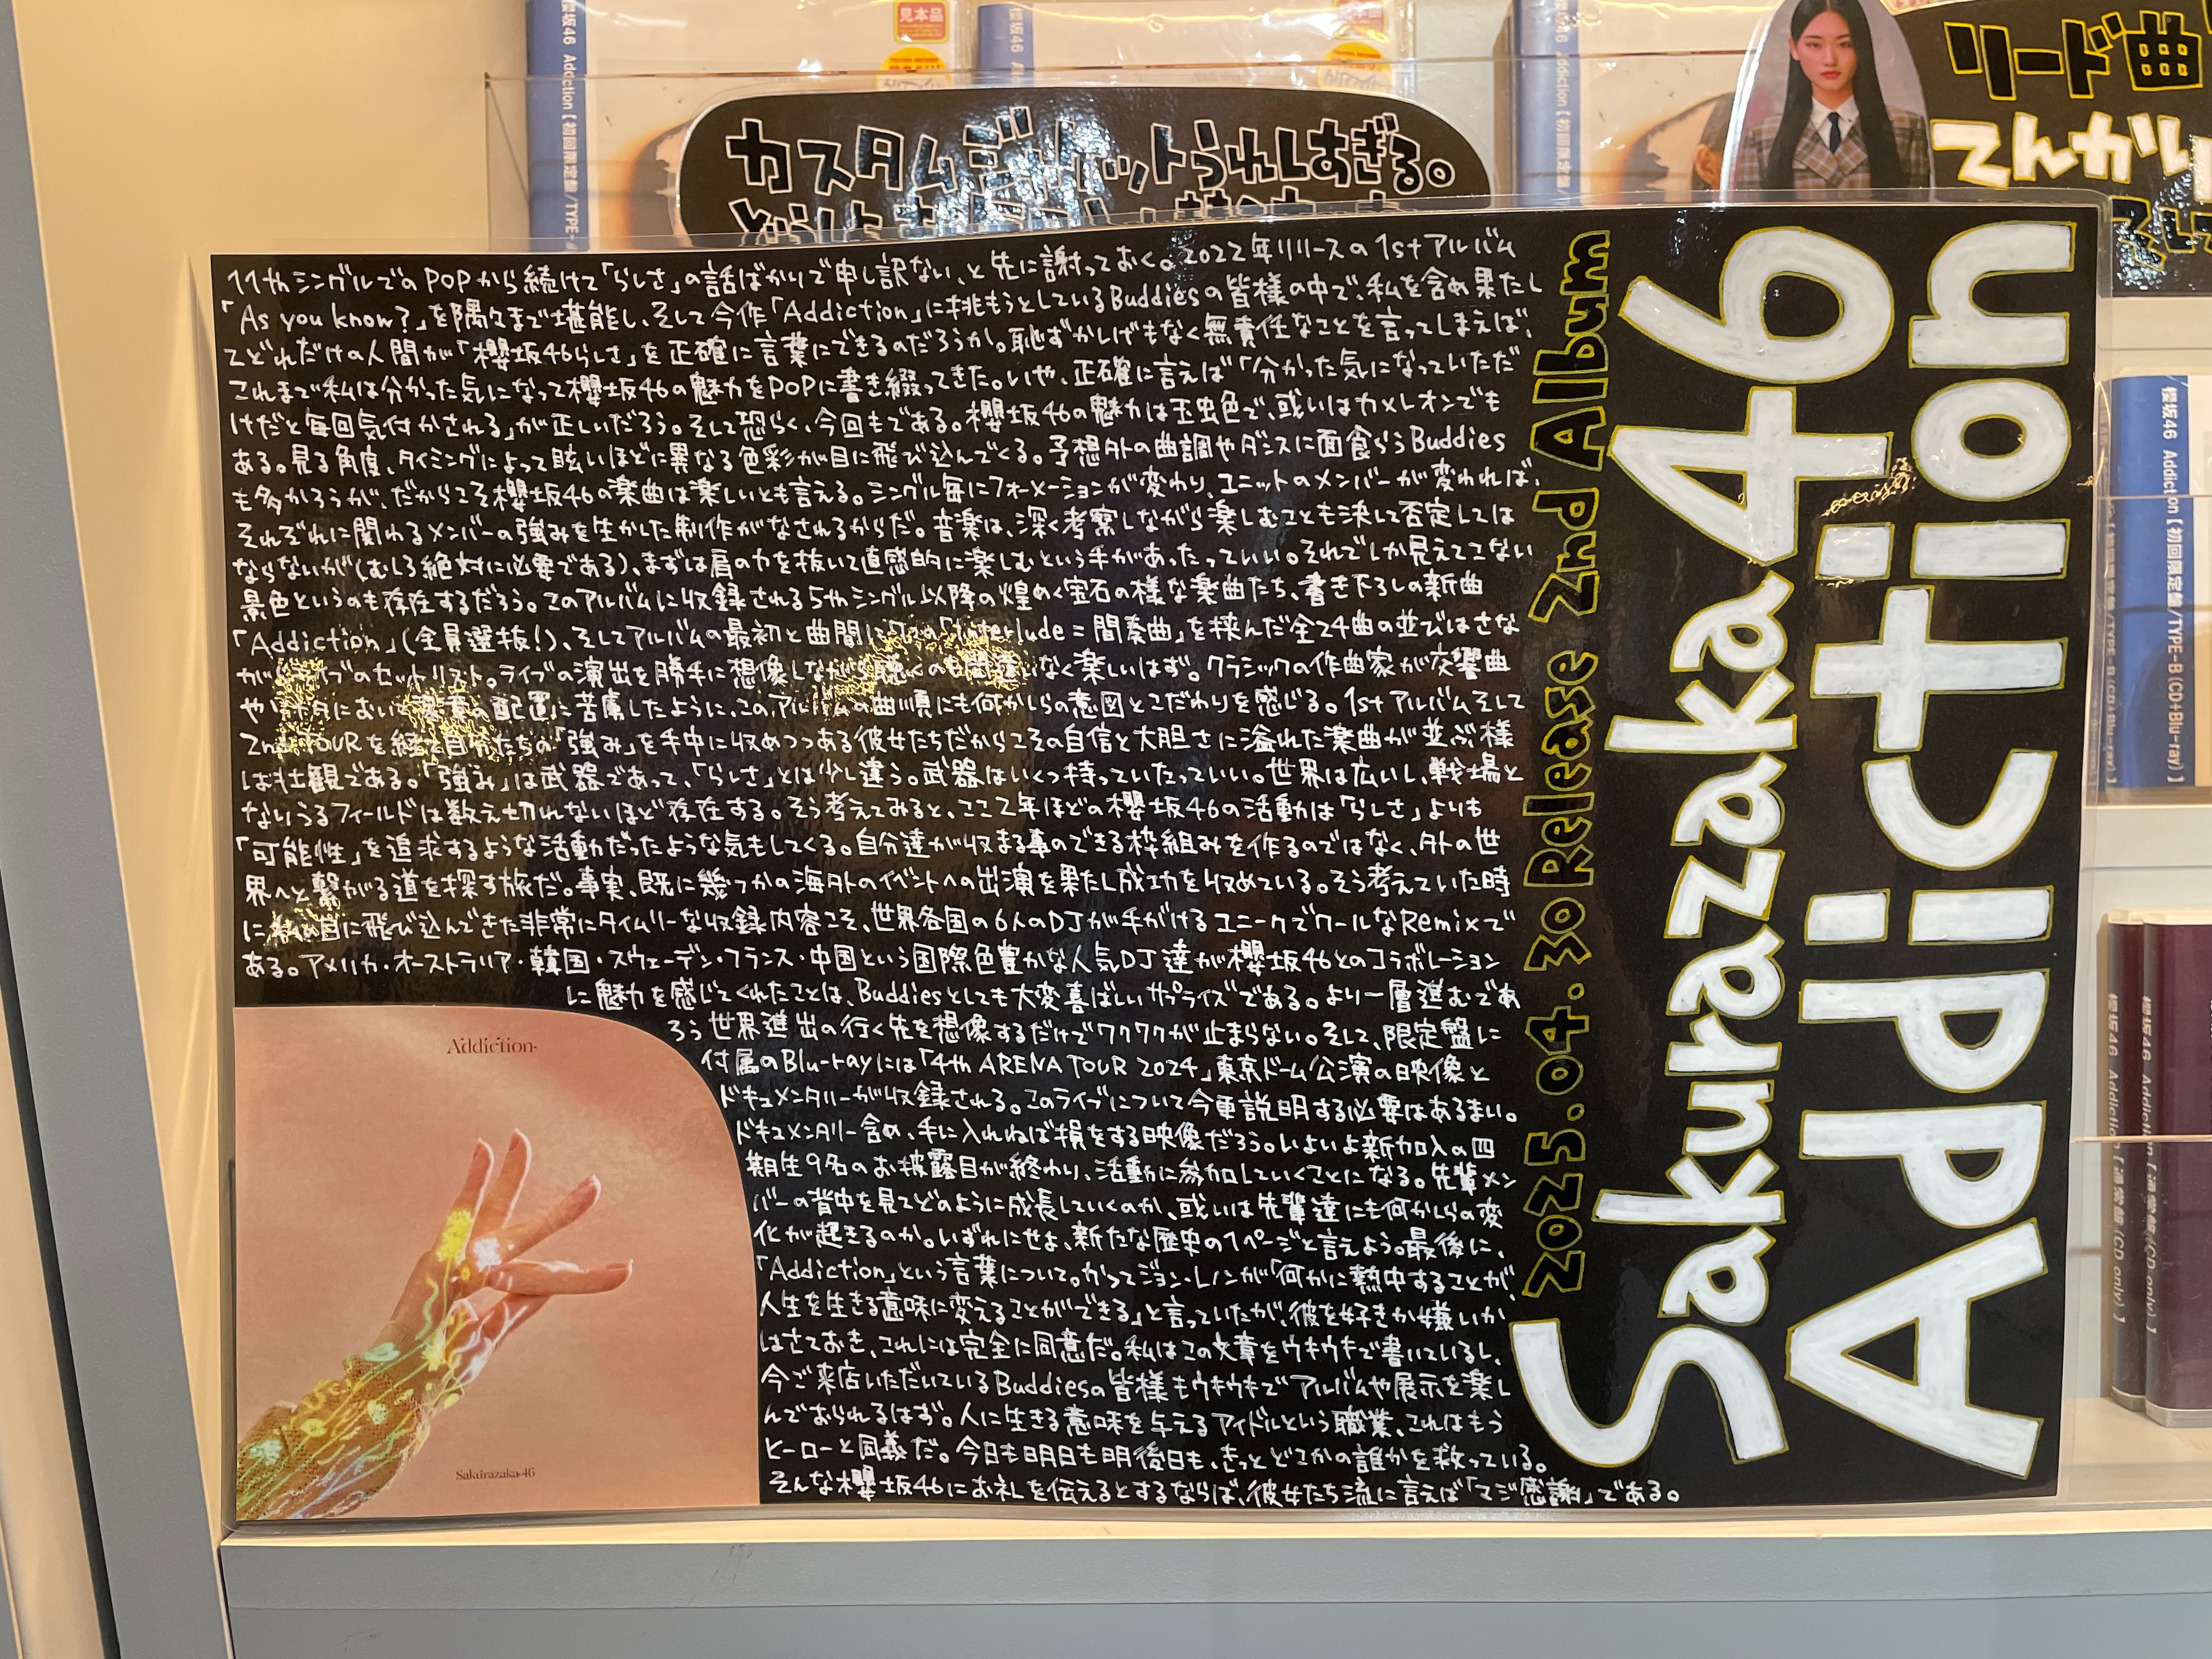 櫻坂46 Addiction【初回限定盤/TYPE-
見本品
カスタムジャケットうれしすぎる。
リード曲
てんかい
11thシングルでのPOPから続けて「らしさ」の話ばかりで申し訳ない、と先に謝っておく。2022年リリースの1stアルバム
「As you know?」を隅々まで堪能し、そして今作「Addiction」に挑もうとしているBuddiesの皆様の中で、私を含め果たし
てどれだけの人間が「櫻坂46らしさ」を正確に言葉にできるのだろうか。恥ずかしげもなく無責任なことを言ってしまえば、
これまで私は分かった気になって櫻坂46の魅力をPOPに書き綴ってきた。いや、正確に言えば「分かった気になっていただ
けだと毎回気付かされる」が正しいだろう。そして恐らく、今回もである。櫻坂46の魅力は玉虫色で、或いはカメレオンでも
ある。見る角度、タイミングによって眩いほどに異なる色彩が目に飛び込んでくる。予想外の曲調やダンスに面食らうBuddies
も多かろうが、だからこそ櫻坂46の楽曲は楽しいとも言える。シングル毎にフォーメーションが変わり、ユニットのメンバーが変われば、
それぞれに関わるメンバーの強みを生かした制作がなされるからだ。音楽は、深く考察しながら楽しむことも決して否定しては
ならないが(むしろ絶対に必要である)、まずは肩の力を抜いて直感的に楽しむという手があったっていい。それでしか見えてこない
景色というのも存在するだろう。このアルバムに収録される5thシングル以降の煌めく宝石の様な楽曲たち、書き下ろしの新曲
「Addiction」(全員選抜!)、そしてアルバムの最初と曲間に「Interlude=間奏曲」を挟んだ全24曲の並びはさな
がらライブのセットリスト。ライブの演出を勝手に想像しながら聴くのも間違いなく楽しいはず。クラシックの作曲家が交響曲
やにおいて楽章の配置に苦慮したように、このアルバムの曲順にも何かしらの意図とこだわりを感じる。1stアルバムそして
2nd TOURを経て自分たちの「強み」を手中に収めつつある彼女たちだからこその自信と大胆さに溢れた楽曲が並ぶ様
は壮観である。「強み」は武器であって、「らしさ」とは少し違う。武器はいくつ持っていたっていい。世界は広いし、戦場と
なりうるフィールドは数え切れないほど存在する。そう考えてみると、ここ2年ほどの櫻坂46の活動は「らしさ」よりも
「可能性」を追求するような活動だったような気もしてくる。自分達が収まる事のできる枠組みを作るのではなく、外の世
界へと繋がる道を探す旅だ。事実、既に幾つかの海外のイベントへの出演を果たし成功を収めている。そう考えていた時
に私の目に飛び込んできた非常にタイムリーな収録内容こそ、世界各国の6人のDJが手がけるユニークでクールなRemixで
ある。アメリカ・オーストラリア・韓国・スウェーデン・フランス・中国という国際色豊かな人気DJ達が櫻坂46とのコラボレーション
に魅力を感じてくれたことは、Buddiesとしても大変喜ばしいサプライズである。より一層進むであ
ろう世界進出の行く先を想像するだけでワクワクが止まらない。そして、限定盤に
付属のBlu-rayには「4th ARENA TOUR 2024」東京ドーム公演の映像と
ドキュメンタリーが収録される。このライブについて今更説明する必要はあるまい。
ドキュメンタリー含め、手に入れねば損をする映像だろう。いよいよ新加入の四
期生9名のお披露目が終わり、活動に参加していくことになる。先輩メン
バーの背中を見てどのように成長していくのか、或いは先輩達にも何かしらの変
化が起きるのか。いずれにせよ、新たな歴史の1ページと言えよう。最後に、
「Addiction」という言葉について。かつてジョン・レノンが「何かに熱中することが、
人生を生きる意味に変えることができる」と言っていたが、彼を好きか嫌いか
はさておき、これには完全に同意だ。私はこの文章をウキウキで書いているし、
今ご来店いただいているBuddiesの皆様もウキウキでアルバムや展示を楽し
んでおられるはず。人に生きる意味を与えるアイドルという職業、これはもう
ヒーローと同義だ。今日も明日も明後日も、きっとどこかの誰かを救っている。
そんな櫻坂46にお礼を伝えるとするならば、彼女たち流に言えば「マジ感謝」である。
2025.04.30 Release 2nd Album
Sakurazaka46
Addiction
Addiction
Sakurazaka46
櫻坂46 Addiction【初回限定盤/TYPE-B(CD+Blu-ray)】
櫻坂46 Addiction【通常盤(CD only)】